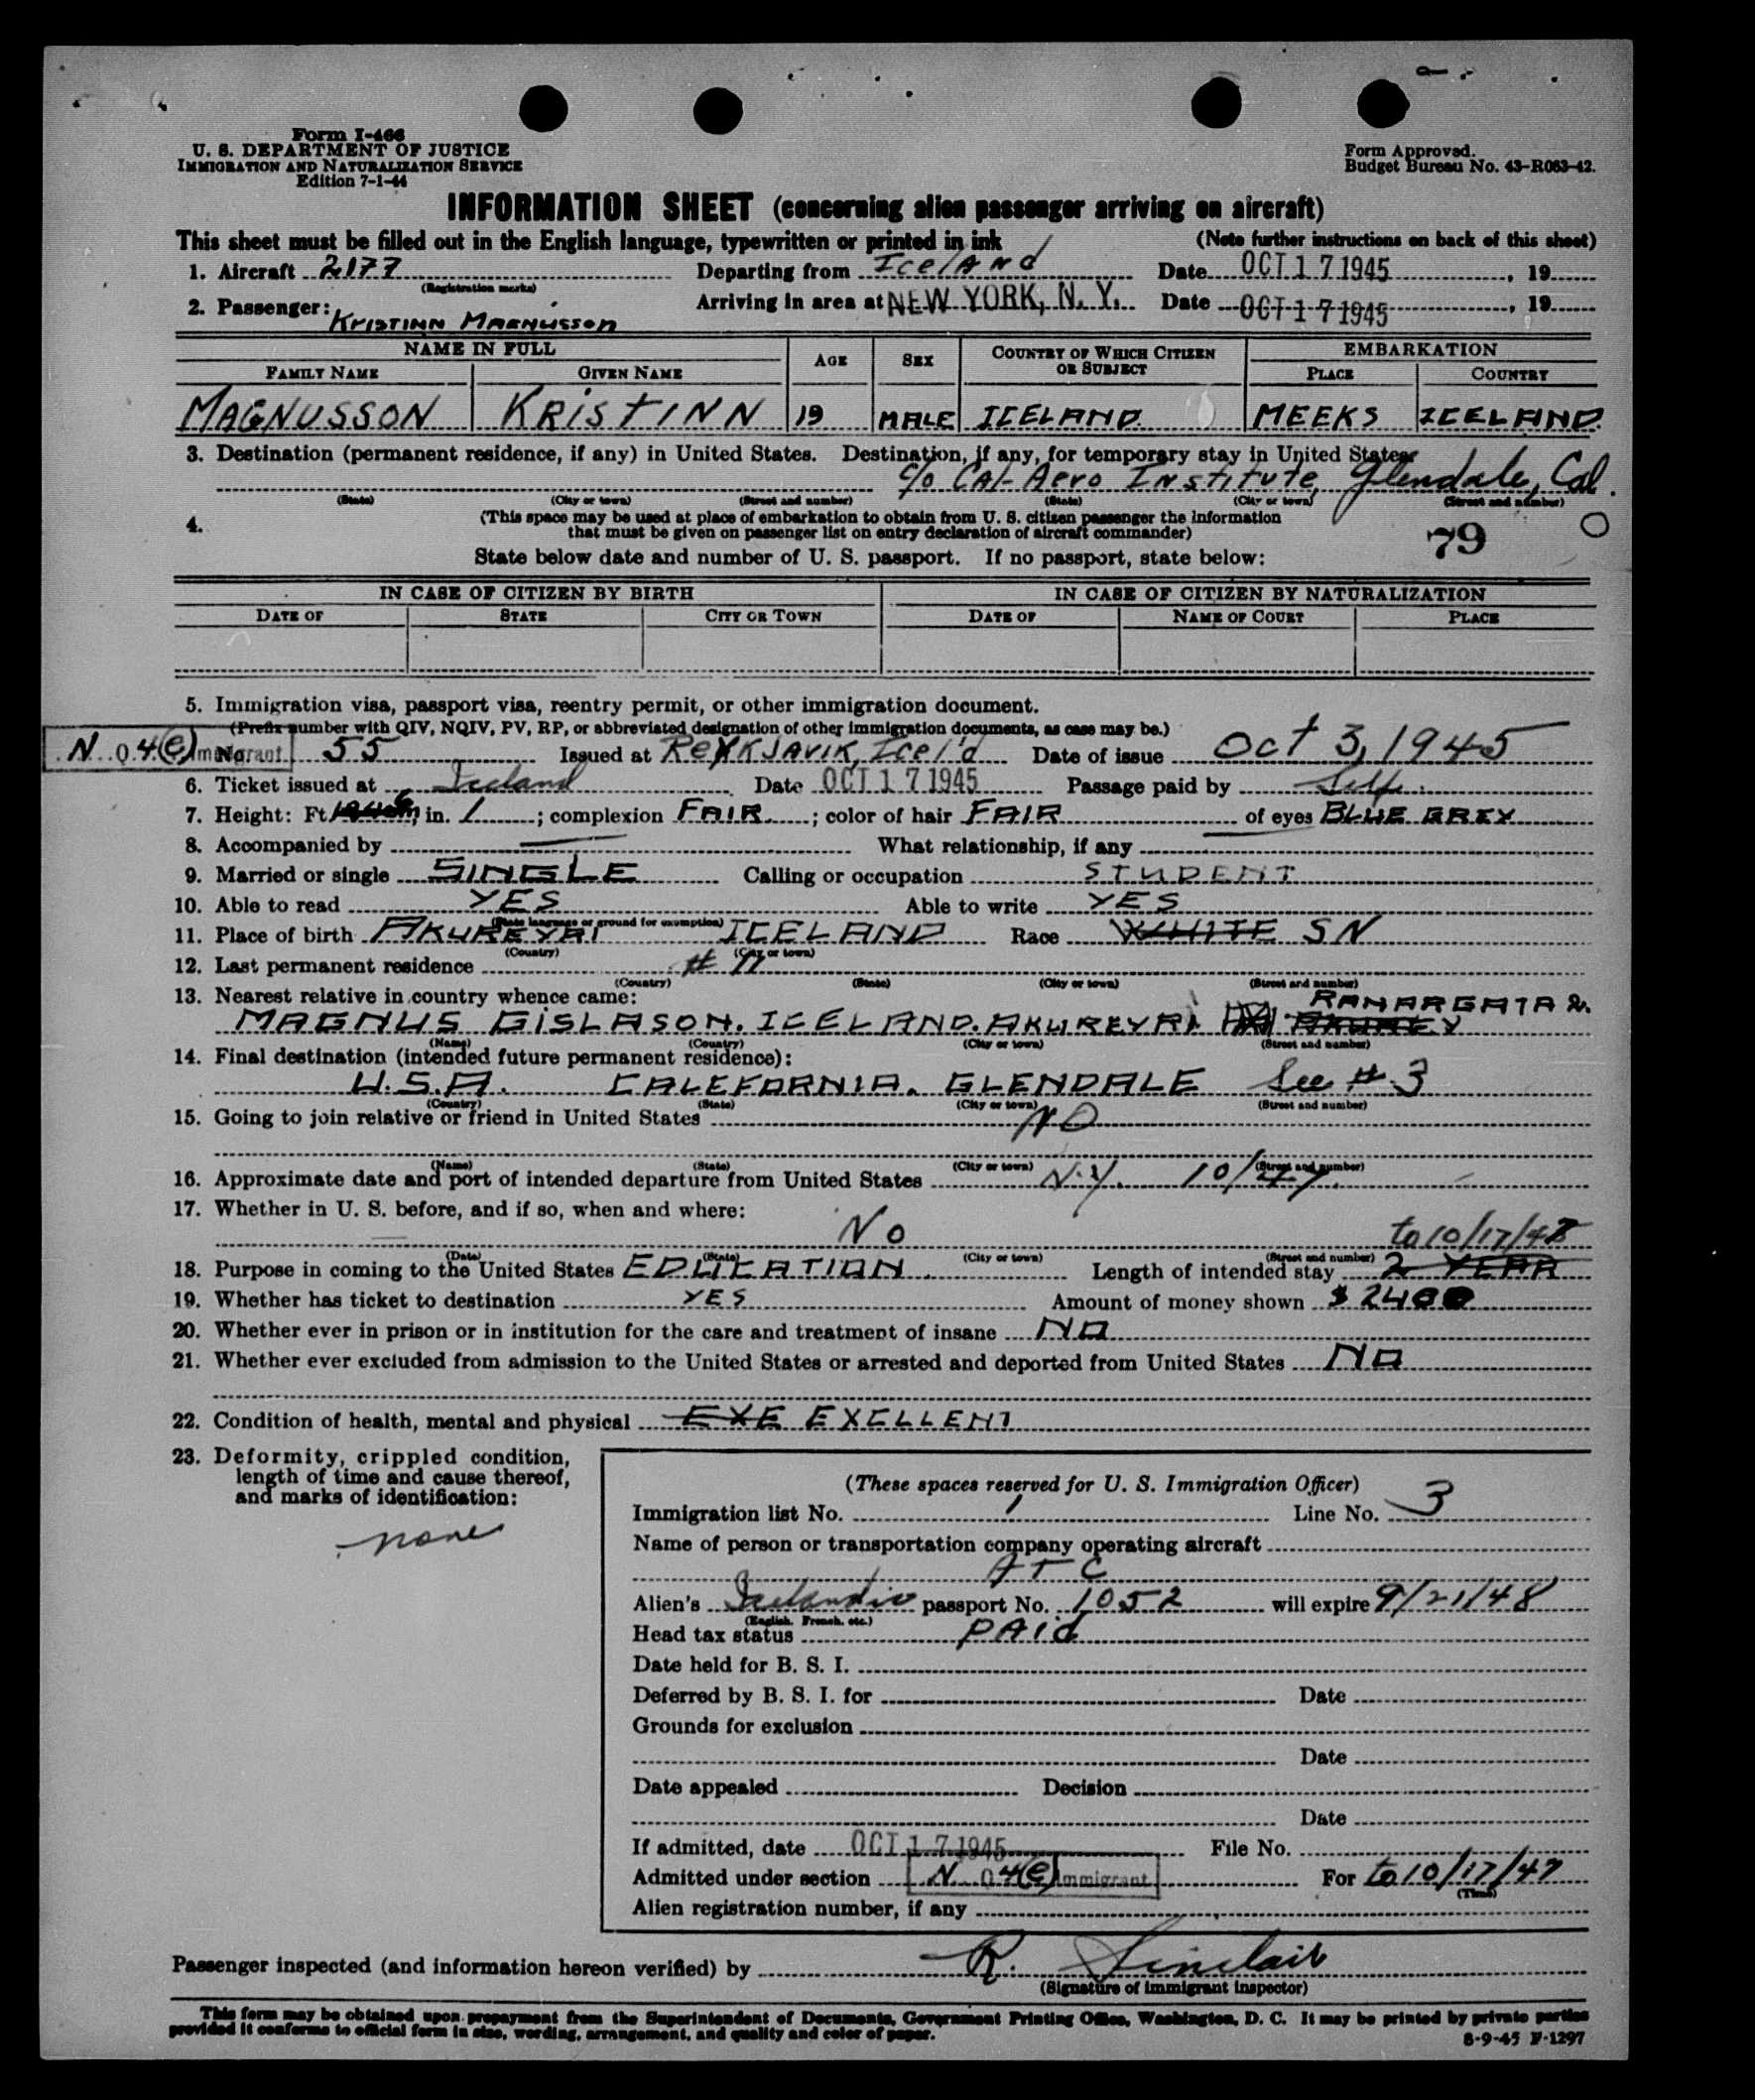 Form I-466
U. S. DEPARTMENT OF JUSTICE
IMMIGRATION AND NATURALIZATION SERVICE
Edition 7-1-44
Form Approved.
Budget Bureau No. 43-R063-42.
INFORMATION SHEET (concerning alien passenger arriving on aircraft)
This sheet must be filled out in the English language, typewritten or printed in ink (Note further instructions on back of this sheet)
1. Aircraft 2177 Departing from Iceland Date OCT 17 1945, 19
(Registration marks)
2. Passenger: KRISTINN MAGNUSSON Arriving in area at NEW YORK, N. Y. Date OCT 17 1945, 19
NAME IN FULL AGE SEX COUNTRY OF WHICH CITIZEN OR SUBJECT EMBARKATION
FAMILY NAME GIVEN NAME PLACE COUNTRY
MAGNUSSON KRISTINN 19 MALE ICELAND. MEEKS ICELAND.
3. Destination (permanent residence, if any) in United States. Destination, if any, for temporary stay in United States
c/o Cal-Aero Institute, Glendale, Cal.
(State) (City or town) (Street and number) (State) (City or town) (Street and number)
4. (This space may be used at place of embarkation to obtain from U. S. citizen passenger the information
that must be given on passenger list on entry declaration of aircraft commander)
79
State below date and number of U. S. passport. If no passport, state below:
IN CASE OF CITIZEN BY BIRTH IN CASE OF CITIZEN BY NATURALIZATION
DATE OF STATE CITY OR TOWN DATE OF NAME OF COURT PLACE
5. Immigration visa, passport visa, reentry permit, or other immigration document.
(Prefix number with QIV, NQIV, PV, RP, or abbreviated designation of other immigration documents, as case may be.)
N 4(e) Immigrant No. 55 Issued at REYKJAVIK, Icel'd Date of issue Oct 3, 1945
6. Ticket issued at Iceland Date OCT 17 1945 Passage paid by Self.
7. Height: Ft. 6, in. 1; complexion FAIR; color of hair FAIR of eyes BLUE GREY
8. Accompanied by What relationship, if any
9. Married or single SINGLE Calling or occupation STUDENT
10. Able to read YES Able to write YES
(State language or ground for exemption)
11. Place of birth AKUREYRI ICELAND Race WHITE SN
(Country) (City or town)
12. Last permanent residence # 11
(Country) (State) (City or town) (Street and number)
13. Nearest relative in country whence came: RANARGATA 2.
MAGNUS GISLASON. ICELAND. AKUREYRI.
(Name) (Country) (City or town) (Street and number)
14. Final destination (intended future permanent residence):
U.S.A. CALEFORNIA. GLENDALE See # 3
(Country) (State) (City or town) (Street and number)
15. Going to join relative or friend in United States NO
(Name) (State) (City or town) (Street and number)
16. Approximate date and port of intended departure from United States N.Y. 10/47.
17. Whether in U. S. before, and if so, when and where:
No to 10/17/47
(Date) (State) (City or town) (Street and number)
18. Purpose in coming to the United States EDUCATION Length of intended stay 2 YEAR
19. Whether has ticket to destination YES Amount of money shown $ 2400
20. Whether ever in prison or in institution for the care and treatment of insane NO
21. Whether ever excluded from admission to the United States or arrested and deported from United States NO
22. Condition of health, mental and physical EXE EXELLENT
23. Deformity, crippled condition,
length of time and cause thereof,
and marks of identification:
none
(These spaces reserved for U. S. Immigration Officer)
Immigration list No. 1 Line No. 3
Name of person or transportation company operating aircraft
ATC
Alien's Icelandic passport No. 1052 will expire 9/21/48
(English, French, etc.)
Head tax status PAID
Date held for B. S. I.
Deferred by B. S. I. for Date
Grounds for exclusion
Date
Date appealed Decision
Date
If admitted, date OCT 17 1945 File No.
Admitted under section N 4(e) Immigrant For to 10/17/47
(Time)
Alien registration number, if any
Passenger inspected (and information hereon verified) by R. Sinclair
(Signature of immigrant inspector)
This form may be obtained upon prepayment from the Superintendent of Documents, Government Printing Office, Washington, D. C. It may be printed by private parties
provided it conforms to official form in size, wording, arrangement, and quality and color of paper.
8-9-45 F-1297